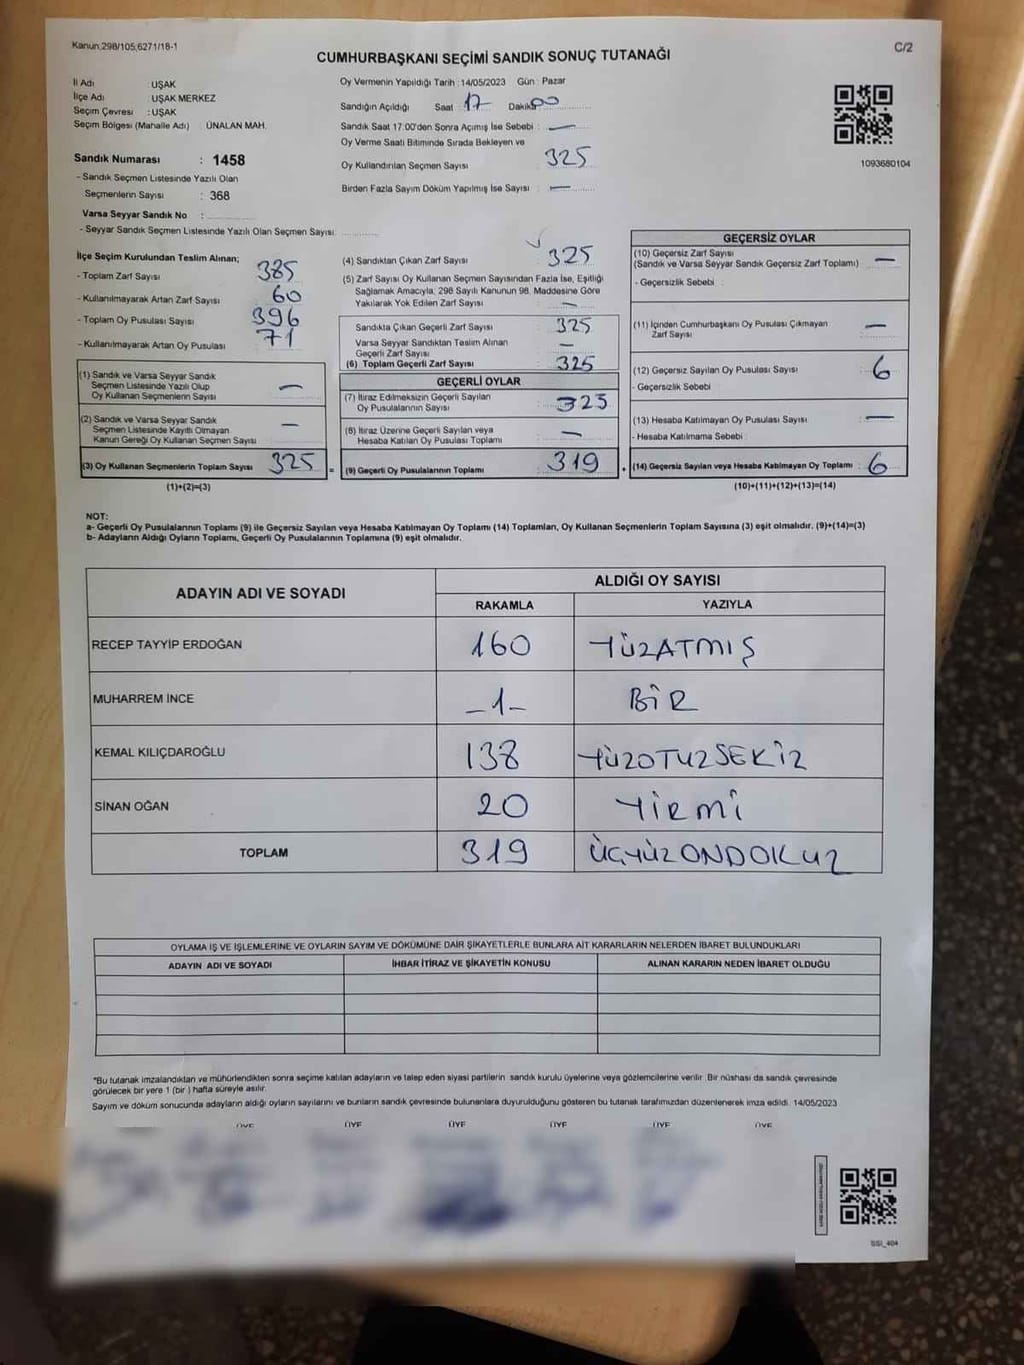 Kanun;298/105;6271/18-1
C/2
CUMHURBAŞKANI SEÇİMİ SANDIK SONUÇ TUTANAĞI
İl Adı : UŞAK
İlçe Adı : UŞAK MERKEZ
Seçim Çevresi : UŞAK
Seçim Bölgesi (Mahalle Adı) : ÜNALAN MAH.
Sandık Numarası : 1458
- Sandık Seçmen Listesinde Yazılı Olan
Seçmenlerin Sayısı : 368
Varsa Seyyar Sandık No :
- Seyyar Sandık Seçmen Listesinde Yazılı Olan Seçmen Sayısı:
Oy Vermenin Yapıldığı Tarih : 14/05/2023 Gün : Pazar
Sandığın Açıldığı Saat 17 Dakika 00
Sandık Saat 17:00'den Sonra Açımış İse Sebebi : —
Oy Verme Saati Bitiminde Sırada Bekleyen ve
Oy Kullandırılan Seçmen Sayısı 325
Birden Fazla Sayım Döküm Yapılmış İse Sayısı : —
1093680104
İlçe Seçim Kurulundan Teslim Alınan;
- Toplam Zarf Sayısı 385
- Kullanılmayarak Artan Zarf Sayısı : 60
- Toplam Oy Pusulası Sayısı : 396
- Kullanılmayarak Artan Oy Pusulası : 71
(1) Sandık ve Varsa Seyyar Sandık
Seçmen Listesinde Yazılı Olup
Oy Kullanan Seçmenlerin Sayısı —
(2) Sandık ve Varsa Seyyar Sandık
Seçmen Listesinde Kayıtlı Olmayan
Kanun Gereği Oy Kullanan Seçmen Sayısı —
(3) Oy Kullanan Seçmenlerin Toplam Sayısı 325 =
(1)+(2)=(3)
(4) Sandıktan Çıkan Zarf Sayısı : 325
(5) Zarf Sayısı Oy Kullanan Seçmen Sayısından Fazla İse, Eşitliği
Sağlamak Amacıyla; 298 Sayılı Kanunun 98. Maddesine Göre
Yakılarak Yok Edilen Zarf Sayısı : —
Sandıkta Çıkan Geçerli Zarf Sayısı : 325
Varsa Seyyar Sandıktan Teslim Alınan
Geçerli Zarf Sayısı —
(6) Toplam Geçerli Zarf Sayısı : 325
GEÇERLİ OYLAR
(7) İtiraz Edilmeksizin Geçerli Sayılan
Oy Pusulalarının Sayısı : 325
(8) İtiraz Üzerine Geçerli Sayılan veya
Hesaba Katılan Oy Pusulası Toplamı : —
(9) Geçerli Oy Pusulalarının Toplamı : 319 +
GEÇERSİZ OYLAR
(10) Geçersiz Zarf Sayısı
(Sandık ve Varsa Seyyar Sandık Geçersiz Zarf Toplamı) : —
- Geçersizlik Sebebi :
(11) İçinden Cumhurbaşkanı Oy Pusulası Çıkmayan
Zarf Sayısı : —
(12) Geçersiz Sayılan Oy Pusulası Sayısı : 6
- Geçersizlik Sebebi :
(13) Hesaba Katılmayan Oy Pusulası Sayısı : —
- Hesaba Katılmama Sebebi :
(14) Geçersiz Sayılan veya Hesaba Katılmayan Oy Toplamı : 6
(10)+(11)+(12)+(13)=(14)
NOT:
a- Geçerli Oy Pusulalarının Toplamı (9) ile Geçersiz Sayılan veya Hesaba Katılmayan Oy Toplamı (14) Toplamları, Oy Kullanan Seçmenlerin Toplam Sayısına (3) eşit olmalıdır. (9)+(14)=(3)
b- Adayların Aldığı Oyların Toplamı, Geçerli Oy Pusulalarının Toplamına (9) eşit olmalıdır.
ADAYIN ADI VE SOYADI
ALDIĞI OY SAYISI
RAKAMLA YAZIYLA
RECEP TAYYİP ERDOĞAN 160 YÜZATMIŞ
MUHARREM İNCE -1- BİR
KEMAL KILIÇDAROĞLU 138 YÜZOTUZSEKİZ
SİNAN OĞAN 20 YİRMİ
TOPLAM 319 ÜÇYÜZONDOKUZ
OYLAMA İŞ VE İŞLEMLERİNE VE OYLARIN SAYIM VE DÖKÜMÜNE DAİR ŞİKAYETLERLE BUNLARA AİT KARARLARIN NELERDEN İBARET BULUNDUKLARI
ADAYIN ADI VE SOYADI İHBAR İTİRAZ VE ŞİKAYETİN KONUSU ALINAN KARARIN NEDEN İBARET OLDUĞU
*Bu tutanak imzalandıktan ve mühürlendikten sonra seçime katılan adayların ve talep eden siyasi partilerin sandık kurulu üyelerine veya gözlemcilerine verilir. Bir nüshası da sandık çevresinde
görülecek bir yere 1 (bir ) hafta süreyle asılır.
Sayım ve döküm sonucunda adayların aldığı oyların sayılarını ve bunların sandık çevresinde bulunanlara duyurulduğunu gösteren bu tutanak tarafımızdan düzenlenerek imza edildi. 14/05/2023
ÜYE ÜYE ÜYE ÜYE ÜYE ÜYE
SSI_404